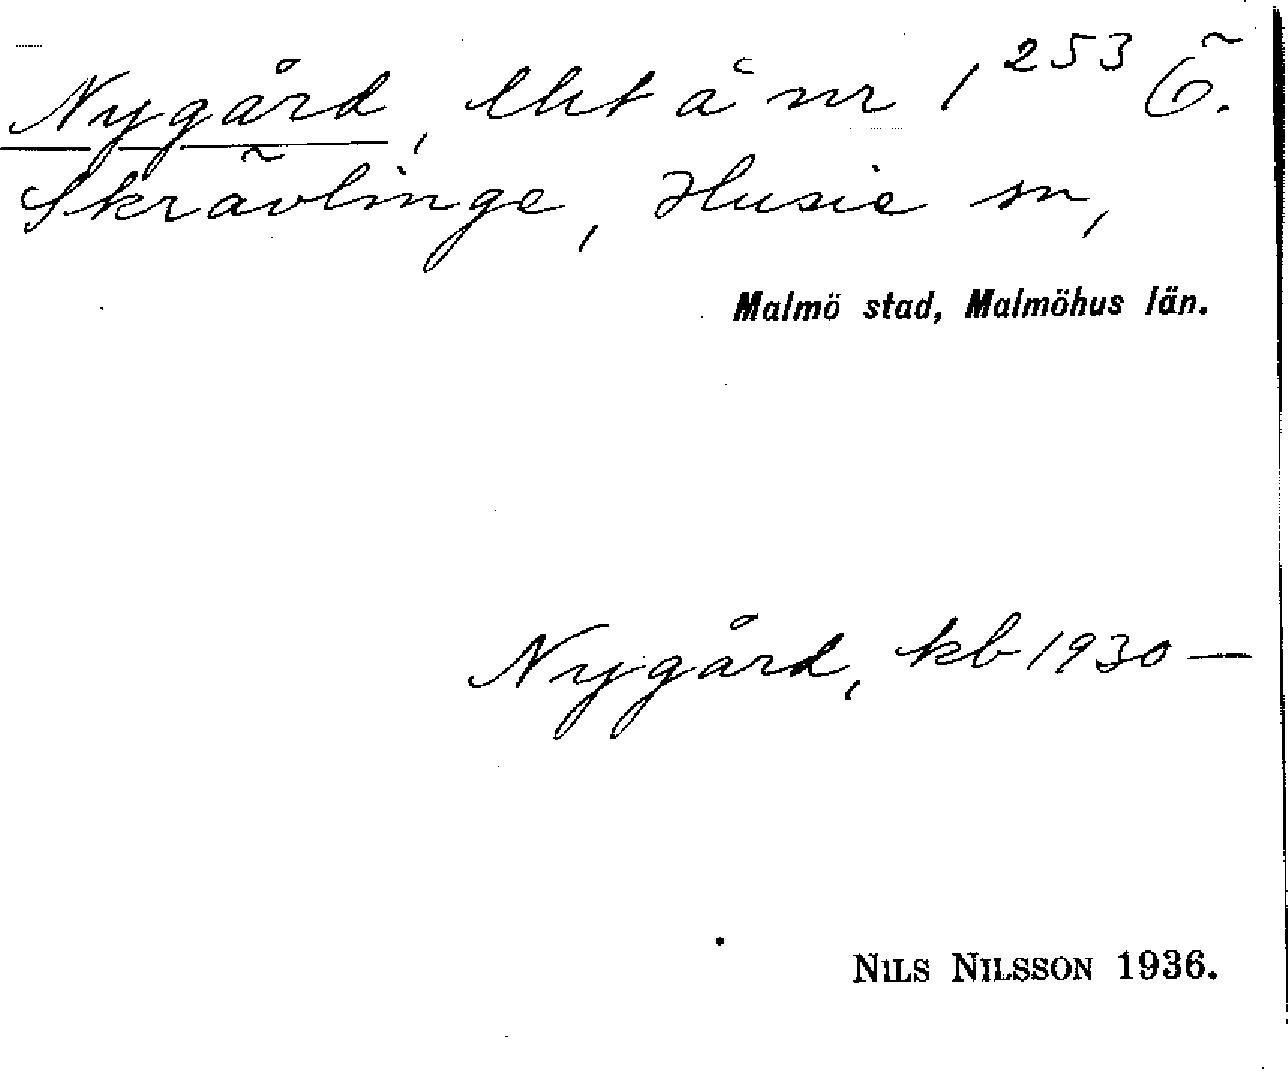 Nygård, lht å nr 1²⁵³ Ö.
Skrävlinge, Husie sn,
Malmö stad, Malmöhus län.
Nygård, kb 1930 —
NILS NILSSON 1936.